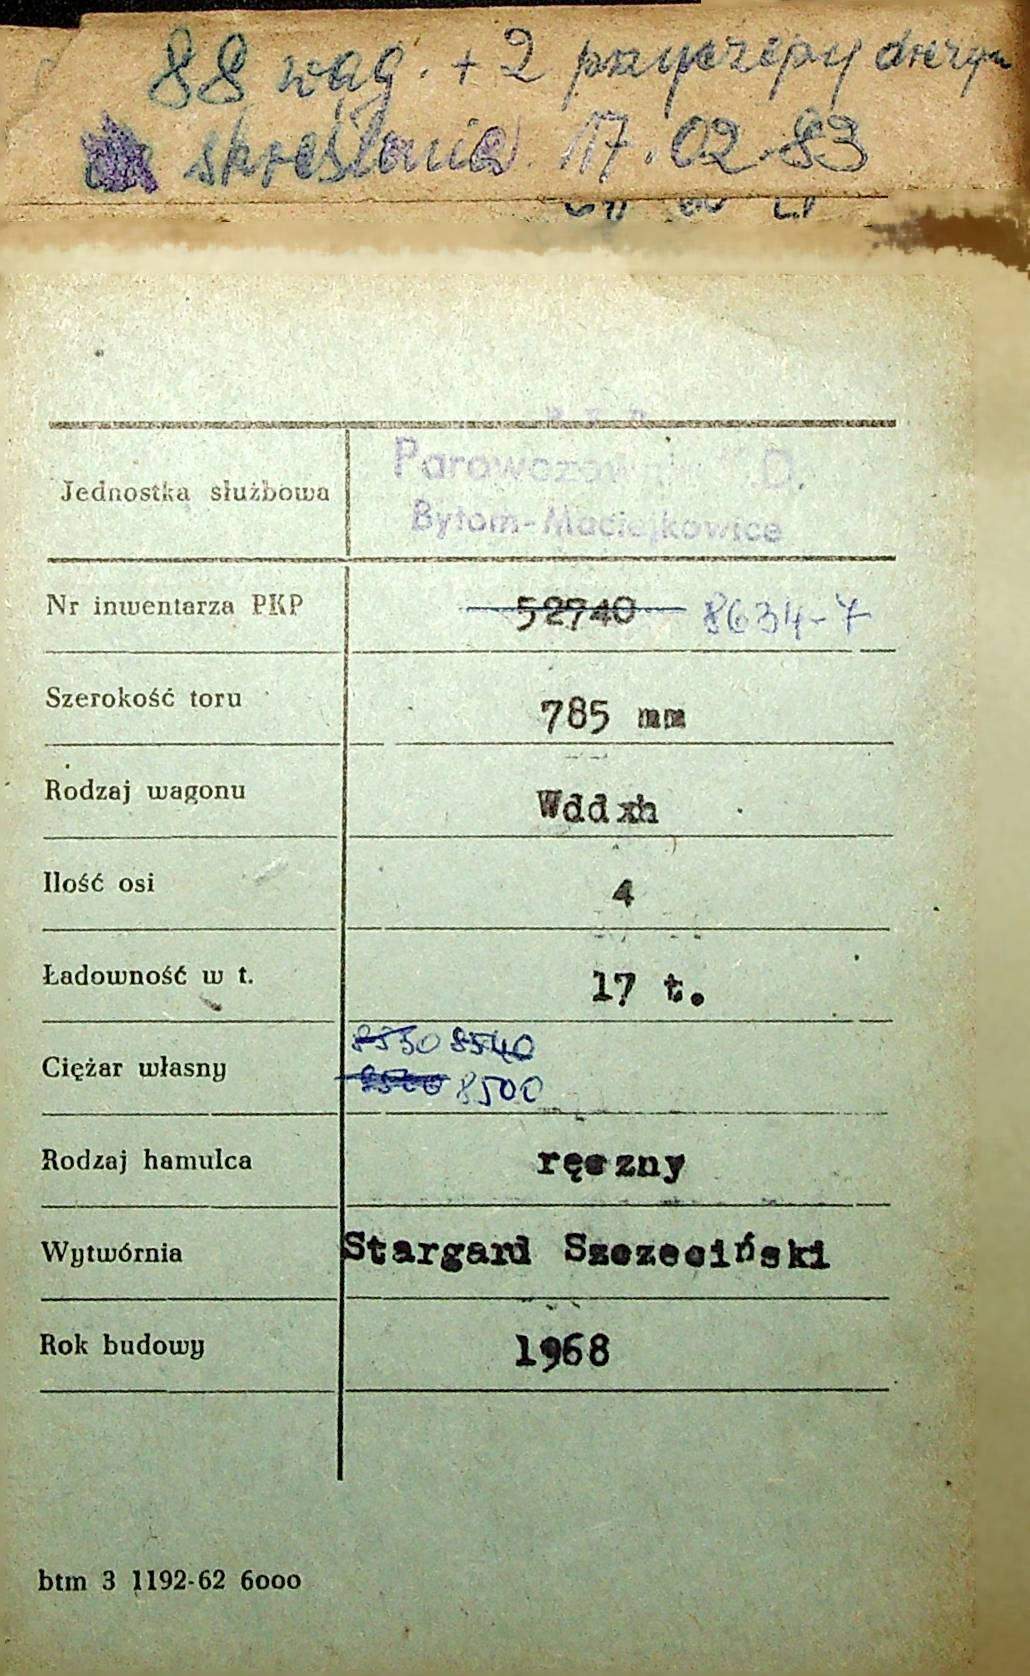 88 wag. + 2 przyczepy drezyn
skreślenie 17.02.83
P K P
Parowozownia D.
Bytom-Maciejkowice
Jednostka służbowa
Nr inwentarza PKP 52740 8634-7
Szerokość toru 785 mm
Rodzaj wagonu Wddxh
Ilość osi 4
Ładowność w t. 17 t.
8530 8540
Ciężar własny 8500
Rodzaj hamulca ręczny
Wytwórnia Stargard Szczeciński
Rok budowy 1968
btm 3 1192-62 6000